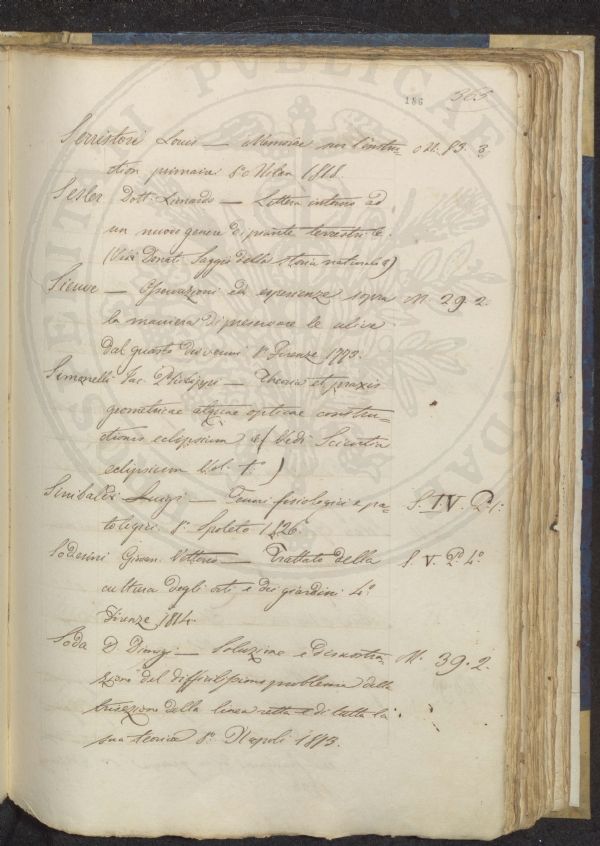 186 365
Serristori Louis — Mémoire sur l'instru- O. II. 83. 3.
ction primaire 8.o Milan 1818.
Sesler Dott. Lionardo — Lettera intorno ad
un nuovo genere di piante terrestri 4.
(Vedi Donati Saggio della storia naturale)
Sieuve — Osservazioni ed esperienze sopra M. 29. 2.
la maniera di preservare le olive
dal guasto dei vermi 8.o Firenze 1773.
Simonelli Jac. Philippi — Theoria et praxis
geometricae atque opticae constru-
ctionis eclipsium (Vedi Scientia
eclipsium Vol. 1.o)
Sinibaldi Luigi — Cenni fisiologici e pa- S. IV. 2. 1.
tologici 8.o Spoleto 1826.
Soderini Giovan. Vittorio — Trattato della S. V. 2.o 4.o
cultura degli orti e dei giardini 4.o
Firenze 1814.
Soda D. Dionigi — Soluzione e dimostra- M. 39. 2.
zione del difficilissimo problema della
trisezione della linea retta e di tutta la
sua teorica 8.o Napoli 1813.